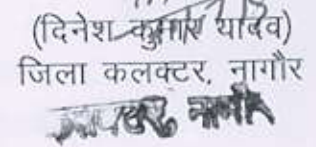 (दिनेश कुमार यादव)
जिला कलक्टर, नागौर